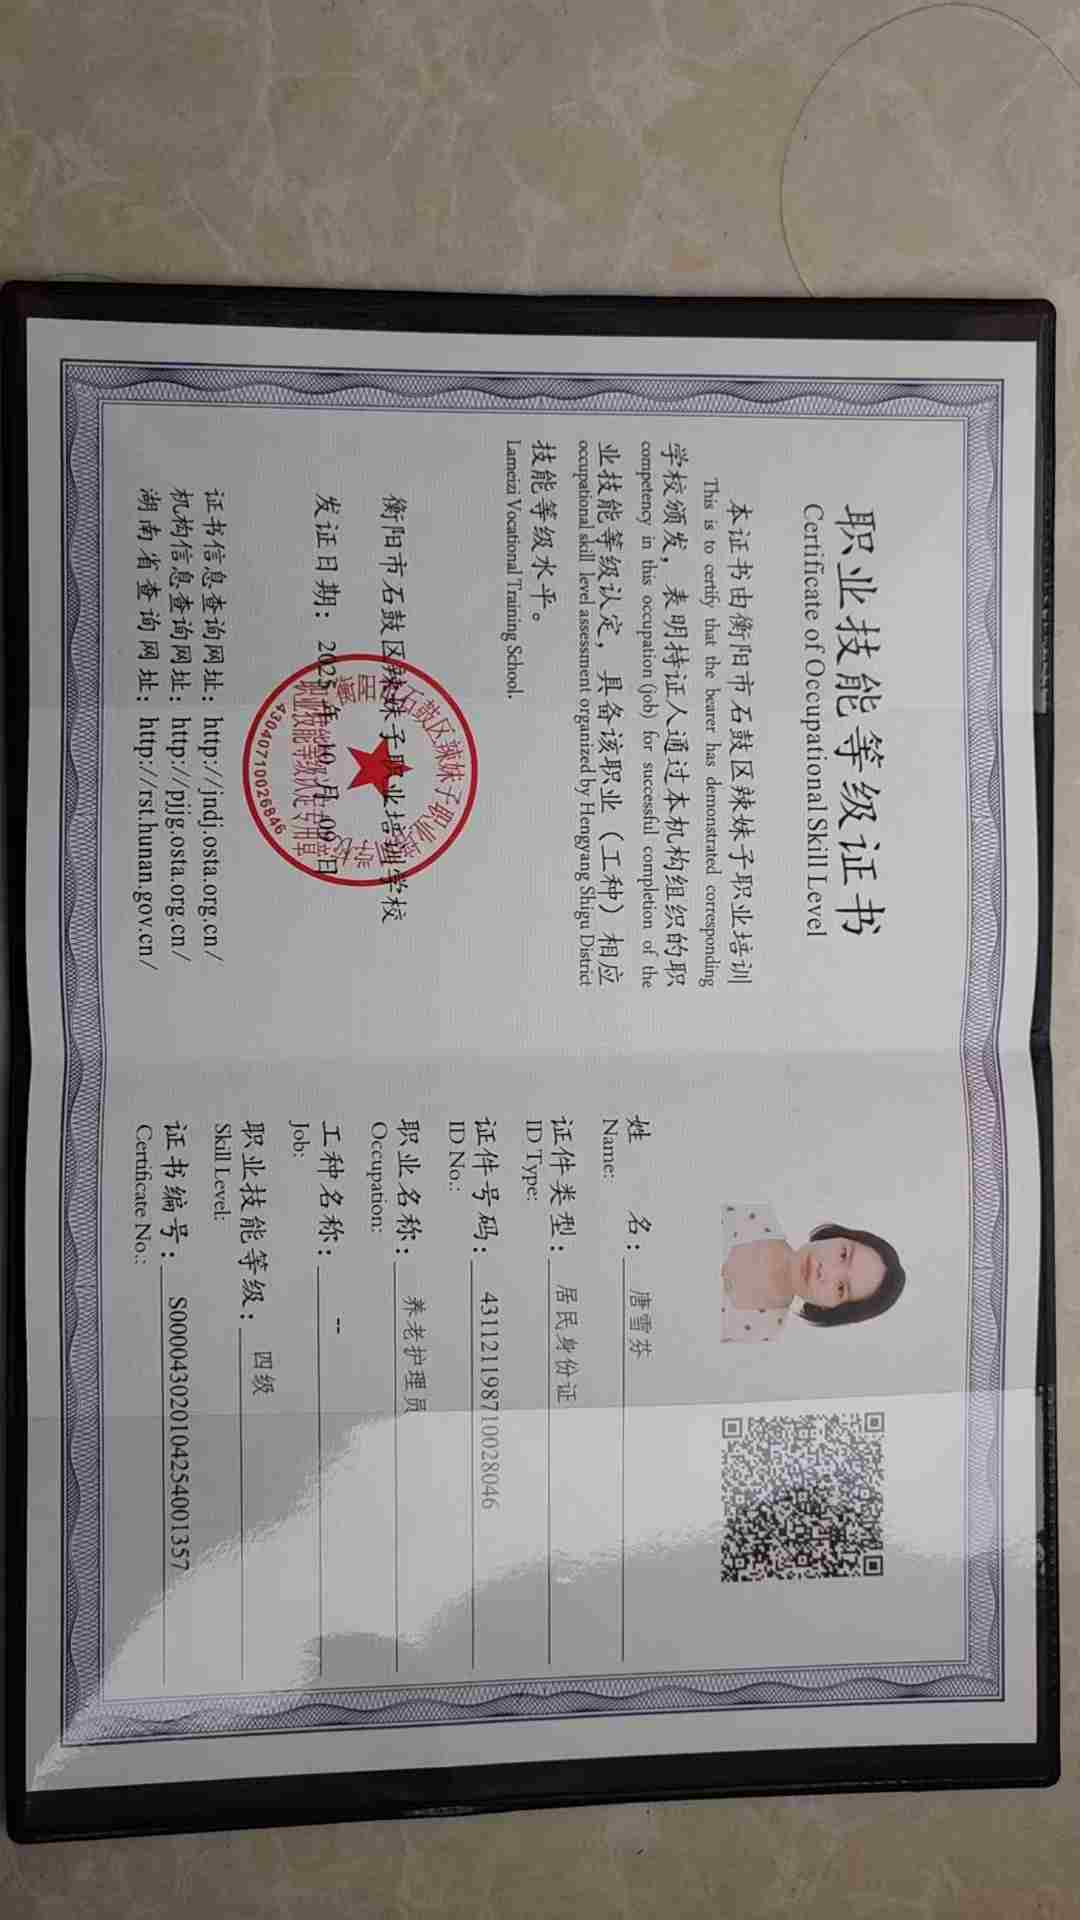 职业技能等级证书
Certificate of Occupational Skill Level
本证书由衡阳市石鼓区辣妹子职业培训
This is to certify that the bearer has demonstrated corresponding
学校颁发，表明持证人通过本机构组织的职
competency in this occupation (job) for successful completion of the
业技能等级认定，具备该职业（工种）相应
occupational skill level assessment organized by Hengyang Shigu District
技能等级水平。
Lameizi Vocational Training School.
衡阳市石鼓区辣妹子职业培训学校
发证日期：2025年10月09日
石鼓区辣妹子职业
职业技能等级认定专用章
43040710026846
证书信息查询网址：http://jndj.osta.org.cn/
机构信息查询网址：http://pjjg.osta.org.cn/
湖南省查询网址：http://rst.hunan.gov.cn/
姓 名：唐雪芬
Name:
证件类型：居民身份证
ID Type:
证件号码：431121198710028046
ID No.:
职业名称：养老护理员
Occupation:
工种名称：--
Job:
职业技能等级：四级
Skill Level:
证书编号：S000043020104254001357
Certificate No.: